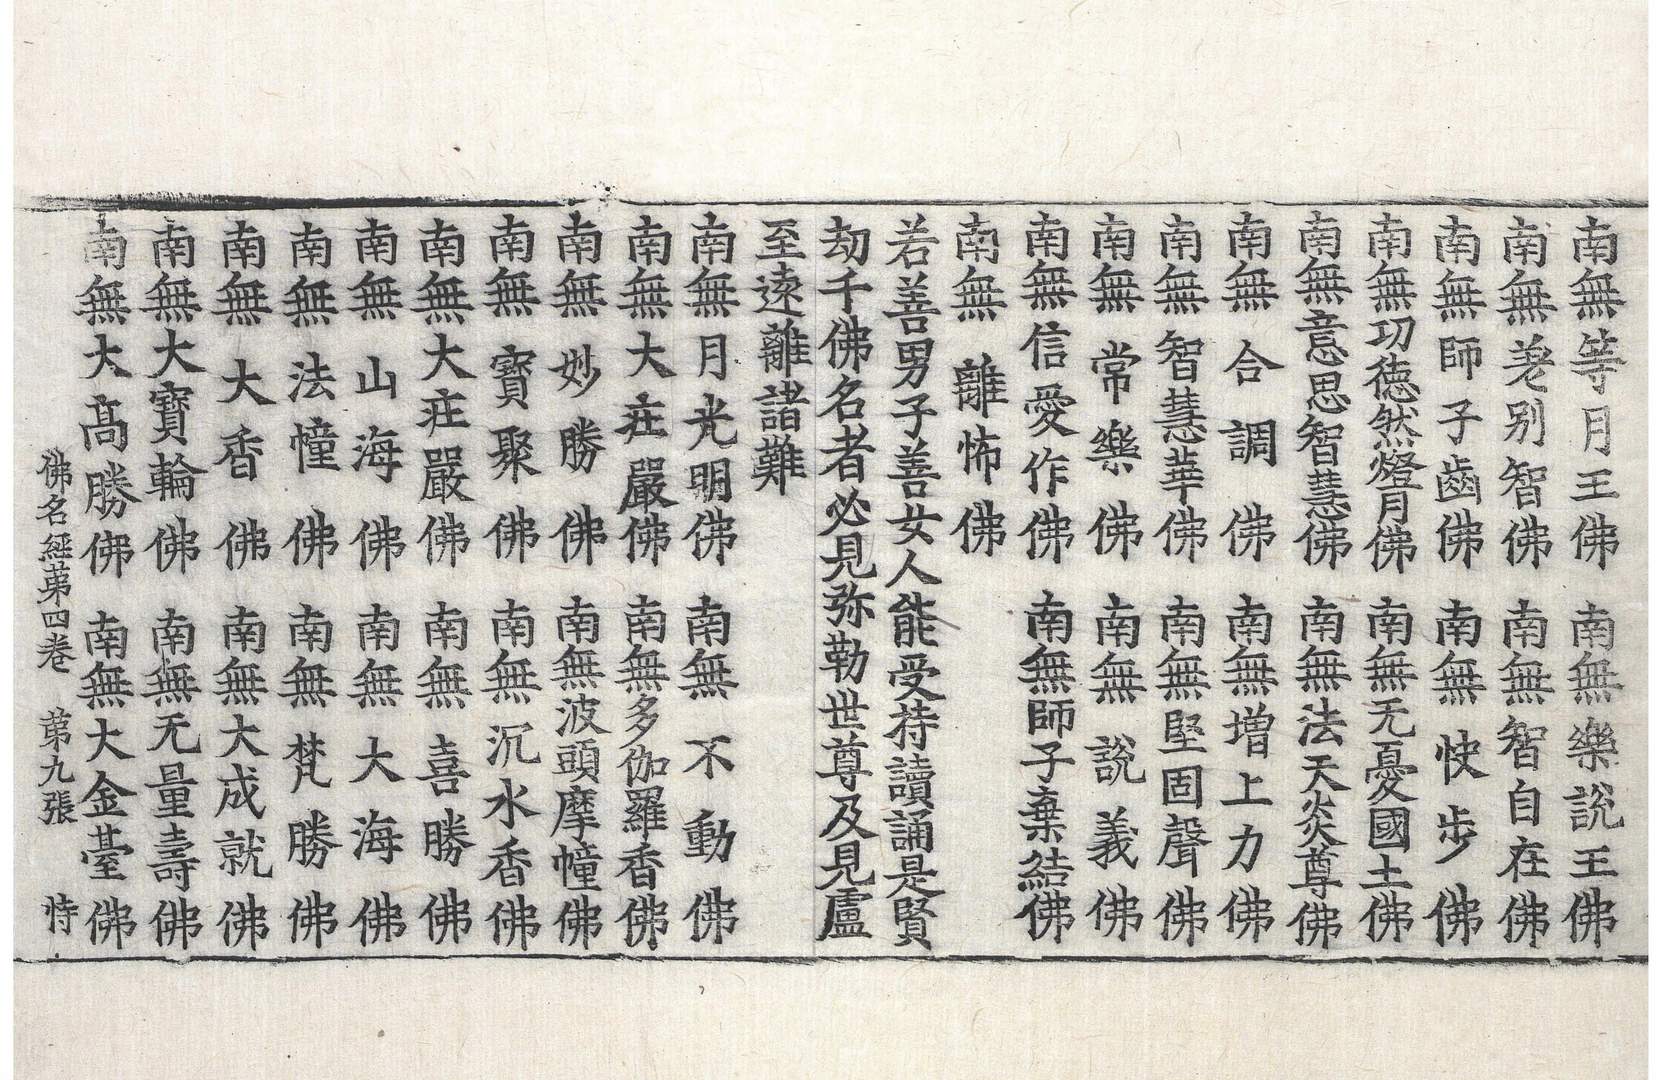 南無等月王佛　南無樂說王佛
南無差別智佛　南無智自在佛
南無師子齒佛　南無快步佛
南無功德然燈月佛　南無无憂國土佛
南無意思智慧佛　南無法天炎尊佛
南無合調佛　南無增上力佛
南無智慧華佛　南無堅固聲佛
南無常樂佛　南無說義佛
南無信愛作佛　南無師子棄結佛
南無離怖佛
若善男子善女人能受持讀誦是賢
劫千佛名者必見弥勒世尊及見盧
至遠離諸難
南無月光明佛　南無不動佛
南無大莊嚴佛　南無多伽羅香佛
南無妙勝佛　南無波頭摩幢佛
南無寶聚佛　南無沉水香佛
南無大莊嚴佛　南無喜勝佛
南無山海佛　南無大海佛
南無法幢佛　南無梵勝佛
南無大香佛　南無大成就佛
南無大寶輪佛　南無无量壽佛
南無大髙勝佛　南無大金臺佛
佛名經第四卷　第九張　恃